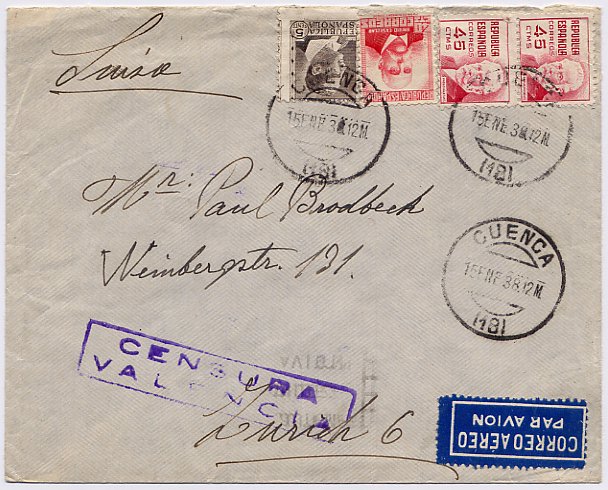 Suiza
5 CTS
REPUBLICA
ESPAÑOLA
REPUBLICA ESPAÑOLA
45
CTMS
CORREOS
REPUBLICA
ESPAÑOLA
45
CTMS
CORREOS
REPUBLICA
ESPAÑOLA
CUENCA
15 ENE 38.12M
(18)
15 ENE 38.12M
(18)
Mr: Paul Brodbeck
Weinbergstr. 131.
CUENCA
15 ENE 38.12M
(18)
CENSURA
VALENCIA
Zurich 6
CORREO AEREO
PAR AVION